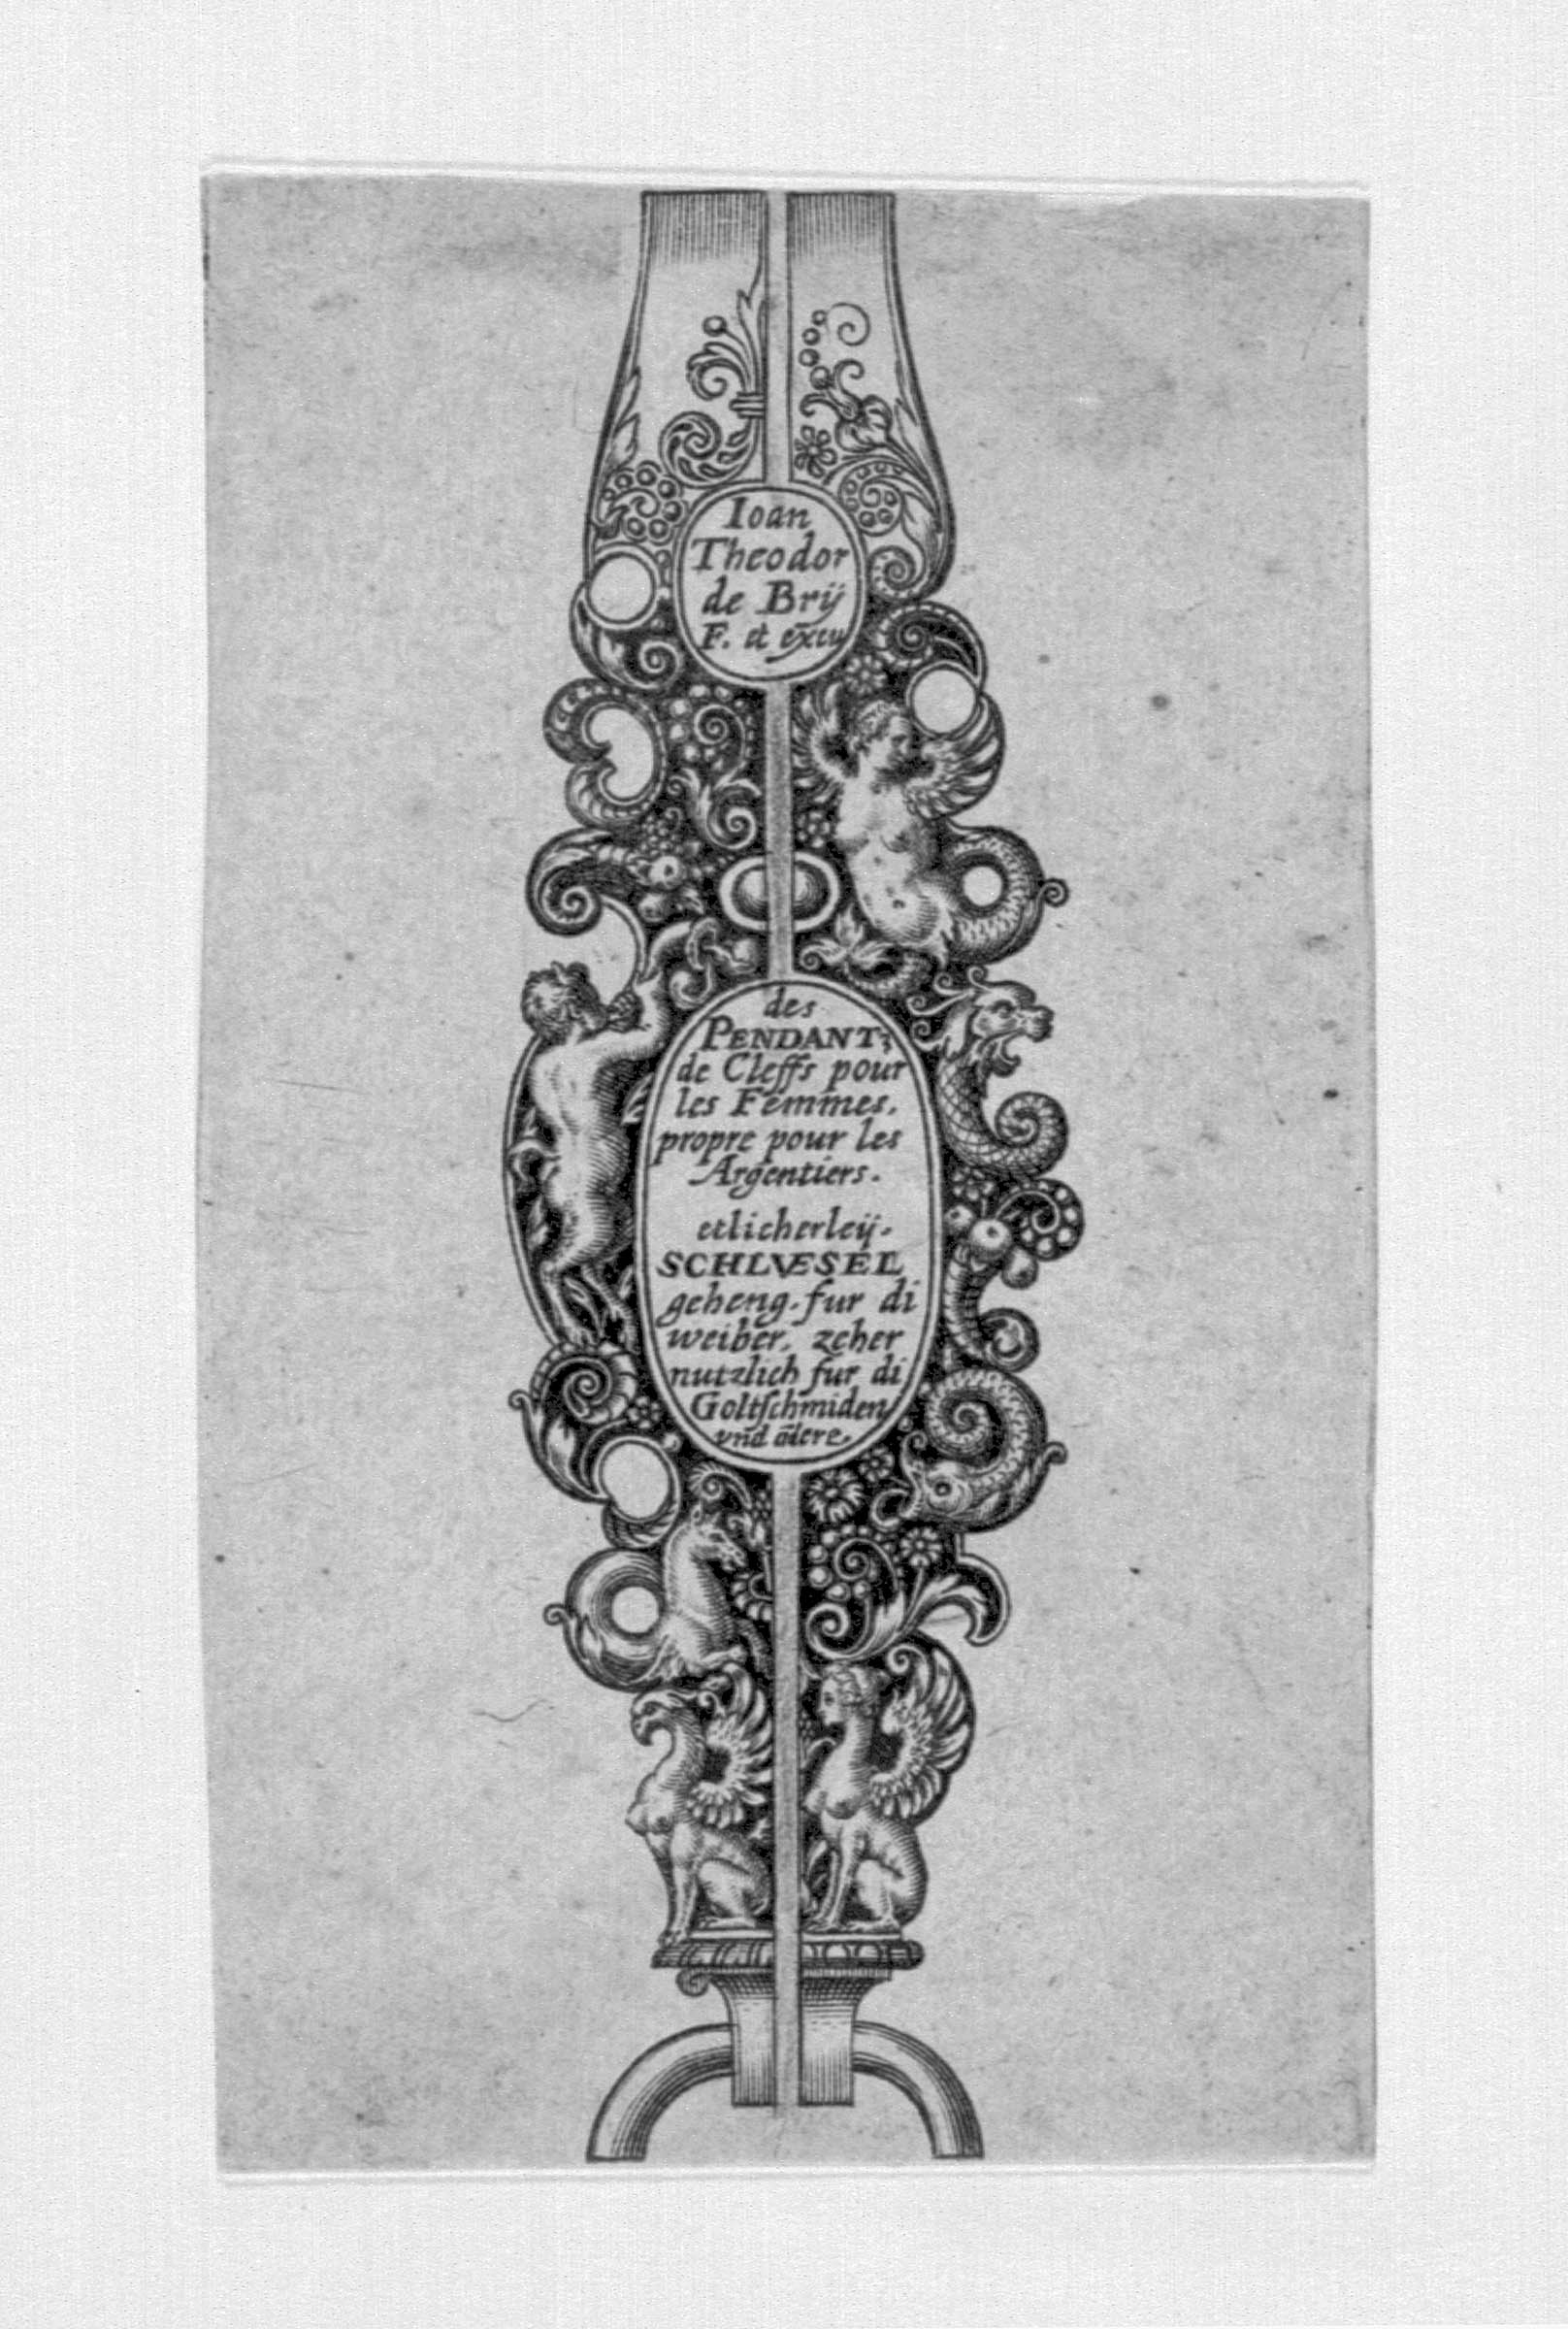 Ioan
Theodor
de Brÿ
F. et excu
des
PENDANTZ
de Cleffs pour
les Femmes.
propre pour les
Argentiers.
etlicherleÿ.
SCHLVESEL
geheng. fur di
weiber, zeher
nutzlich fur di
Goltſchmiden
vñd ādere.